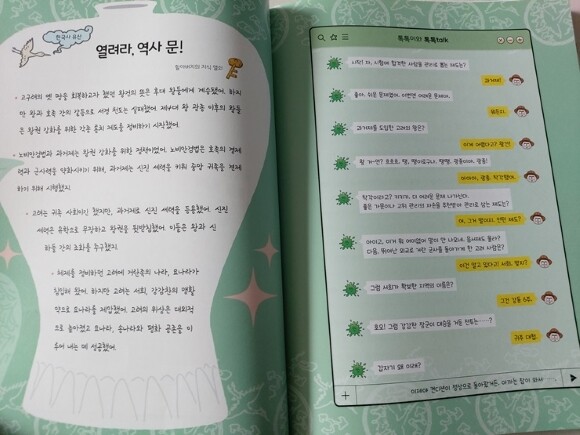 한국사 유산
열려라, 역사 문!
할아버지의 지식 열쇠
• 고구려의 옛 땅을 회복하고자 했던 왕건의 뜻은 후대 왕들에게 계승됐어. 하지
만 왕과 호족 간의 갈등으로 서경 천도는 실패했어. 제4대 왕 광종 이후의 왕들
은 왕권 강화를 위한 각종 통치 제도를 정비하기 시작했어.
• 노비안검법과 과거제는 왕권 강화를 위한 정책이었어. 노비안검법은 호족의 경제
력과 군사력을 약화시키기 위해, 과거제는 신진 세력을 키워 중앙 귀족을 견제
하기 위해 시행했지.
• 고려는 귀족 사회이긴 했지만, 과거제로 신진 세력을 등용했어. 신진
세력은 유학으로 무장하고 왕권을 뒷받침했어. 이들은 왕과 신
하들 간의 조화를 추구했지.
• 체제를 정비하던 고려에 거란족의 나라, 요나라가
침입해 왔어. 하지만 고려는 서희, 강감찬의 맹활
약으로 요나라를 제압했어. 고려의 위상은 대외적
으로 높아졌고 요나라, 송나라와 평화 공존을 이
루어 내는 데 성공했어.
톡톡이와 톡톡talk
시작! 자, 시험에 합격한 사람을 관리로 뽑는 제도는?
과거제!
좋아. 쉬운 문제였어. 이번엔 어려운 문제야.
과거제를 도입한 고려의 왕은?
이게 어렵다고? 왕건!
아아아, 광종. 착각했다.
착각이라고? 키키키. 더 어려운 문제 나가신다.
좋은 가문이나 고위 관리의 자손을 추천받아 관리로 삼는 제도는?
다음. 뛰어난 외교로 거란 군사를 돌아가게 한 고려 사람은?
이건 알고 있다고! 서희, 맞지?
그럼 서희가 확보한 지역의 이름은?
그건 강동 6주.
호오! 그럼 강감찬 장군이 대승을 거둔 전투는……?
귀주 대첩.
갑자기 왜 이래?